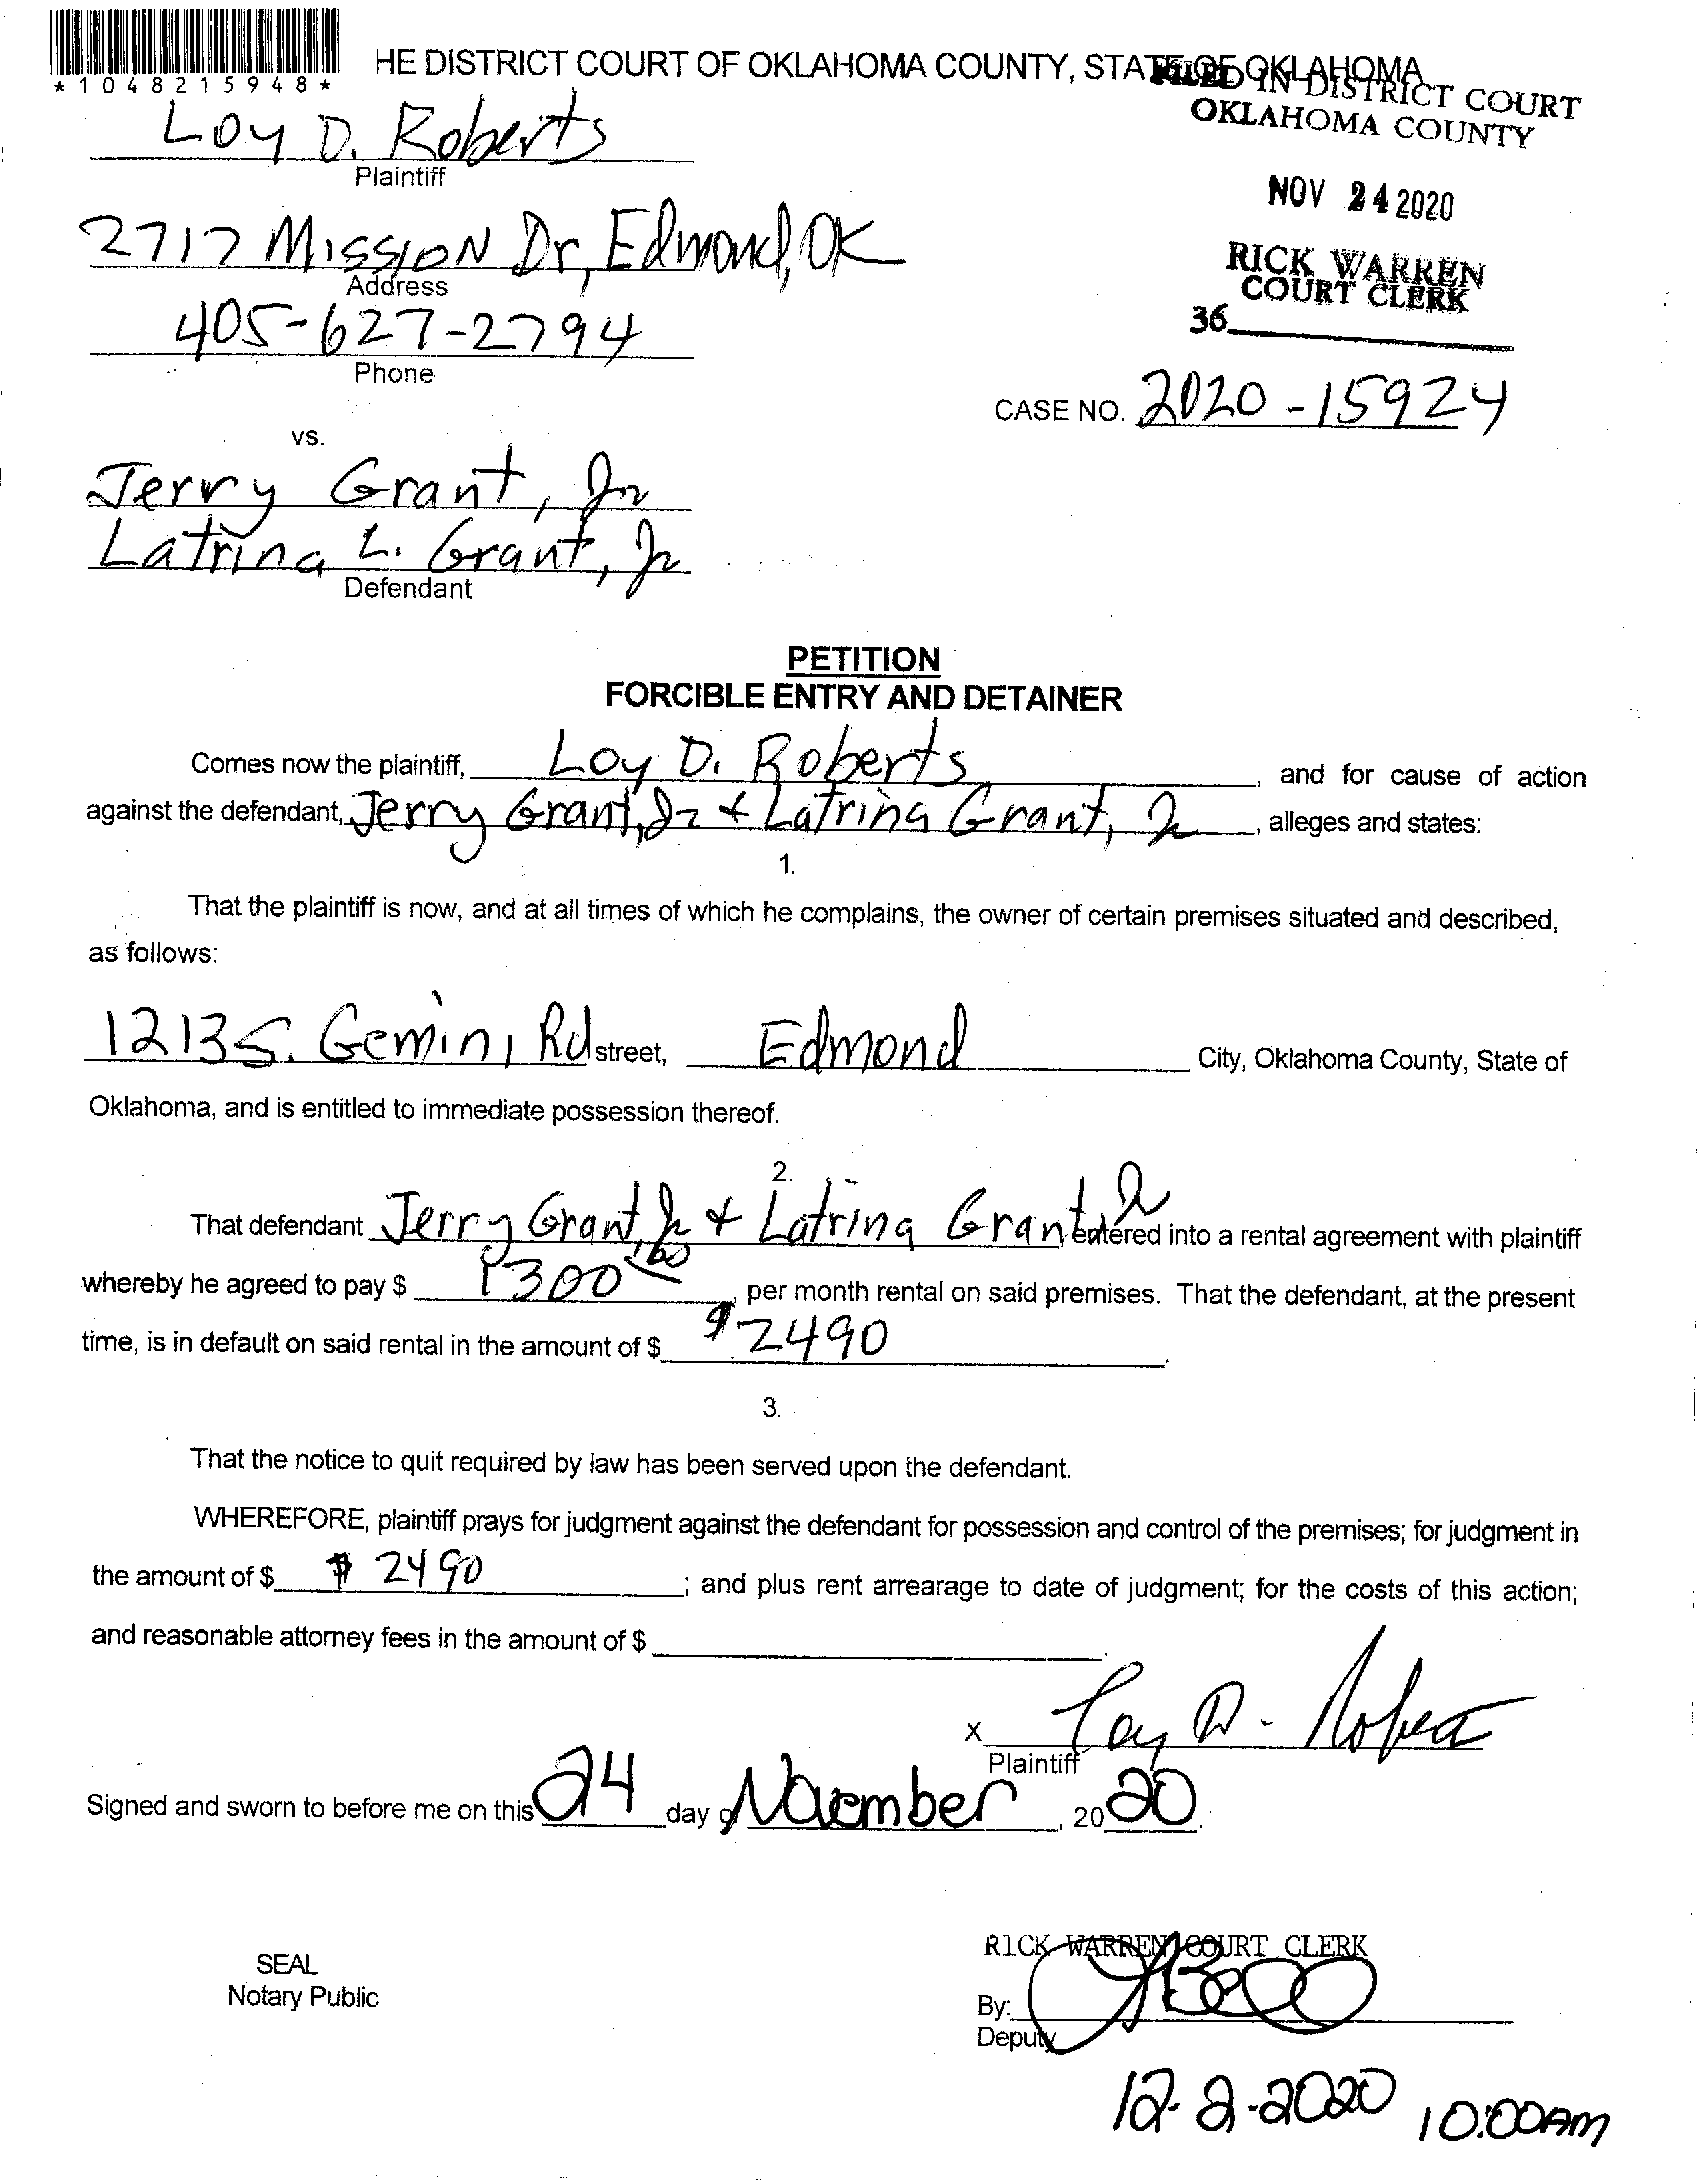 *1048215948*
HE DISTRICT COURT OF OKLAHOMA COUNTY, STATE OF OKLAHOMA
FILED IN DISTRICT COURT
OKLAHOMA COUNTY
Loy D. Roberts
Plaintiff
NOV 24 2020
2717 Mission Dr, Edmond, OK
Address
RICK WARREN
COURT CLERK
405-627-2794
36
Phone
CASE NO. 2020-15924
vs.
Jerry Grant, Jr
Latrina L. Grant, Jr
Defendant
PETITION
FORCIBLE ENTRY AND DETAINER
Comes now the plaintiff, Loy D. Roberts, and for cause of action
against the defendant, Jerry Grant, Jr + Latrina Grant, Jr, alleges and states:
1.
That the plaintiff is now, and at all times of which he complains, the owner of certain premises situated and described,
as follows:
1213 S. Gemini Rd street, Edmond City, Oklahoma County, State of
Oklahoma, and is entitled to immediate possession thereof.
2.
That defendant Jerry Grant, Jr + Latrina Grant Jr entered into a rental agreement with plaintiff
whereby he agreed to pay $ 1300.00, per month rental on said premises. That the defendant, at the present
time, is in default on said rental in the amount of $ $2490.
3.
That the notice to quit required by law has been served upon the defendant.
WHEREFORE, plaintiff prays for judgment against the defendant for possession and control of the premises; for judgment in
the amount of $ $ 2490; and plus rent arrearage to date of judgment; for the costs of this action;
and reasonable attorney fees in the amount of $
x Loy D. Roberts
Plaintiff
Signed and sworn to before me on this 24 day of November, 2020.
RICK WARREN COURT CLERK
SEAL
Notary Public
By:
Deputy
12-2-2020 10:00AM